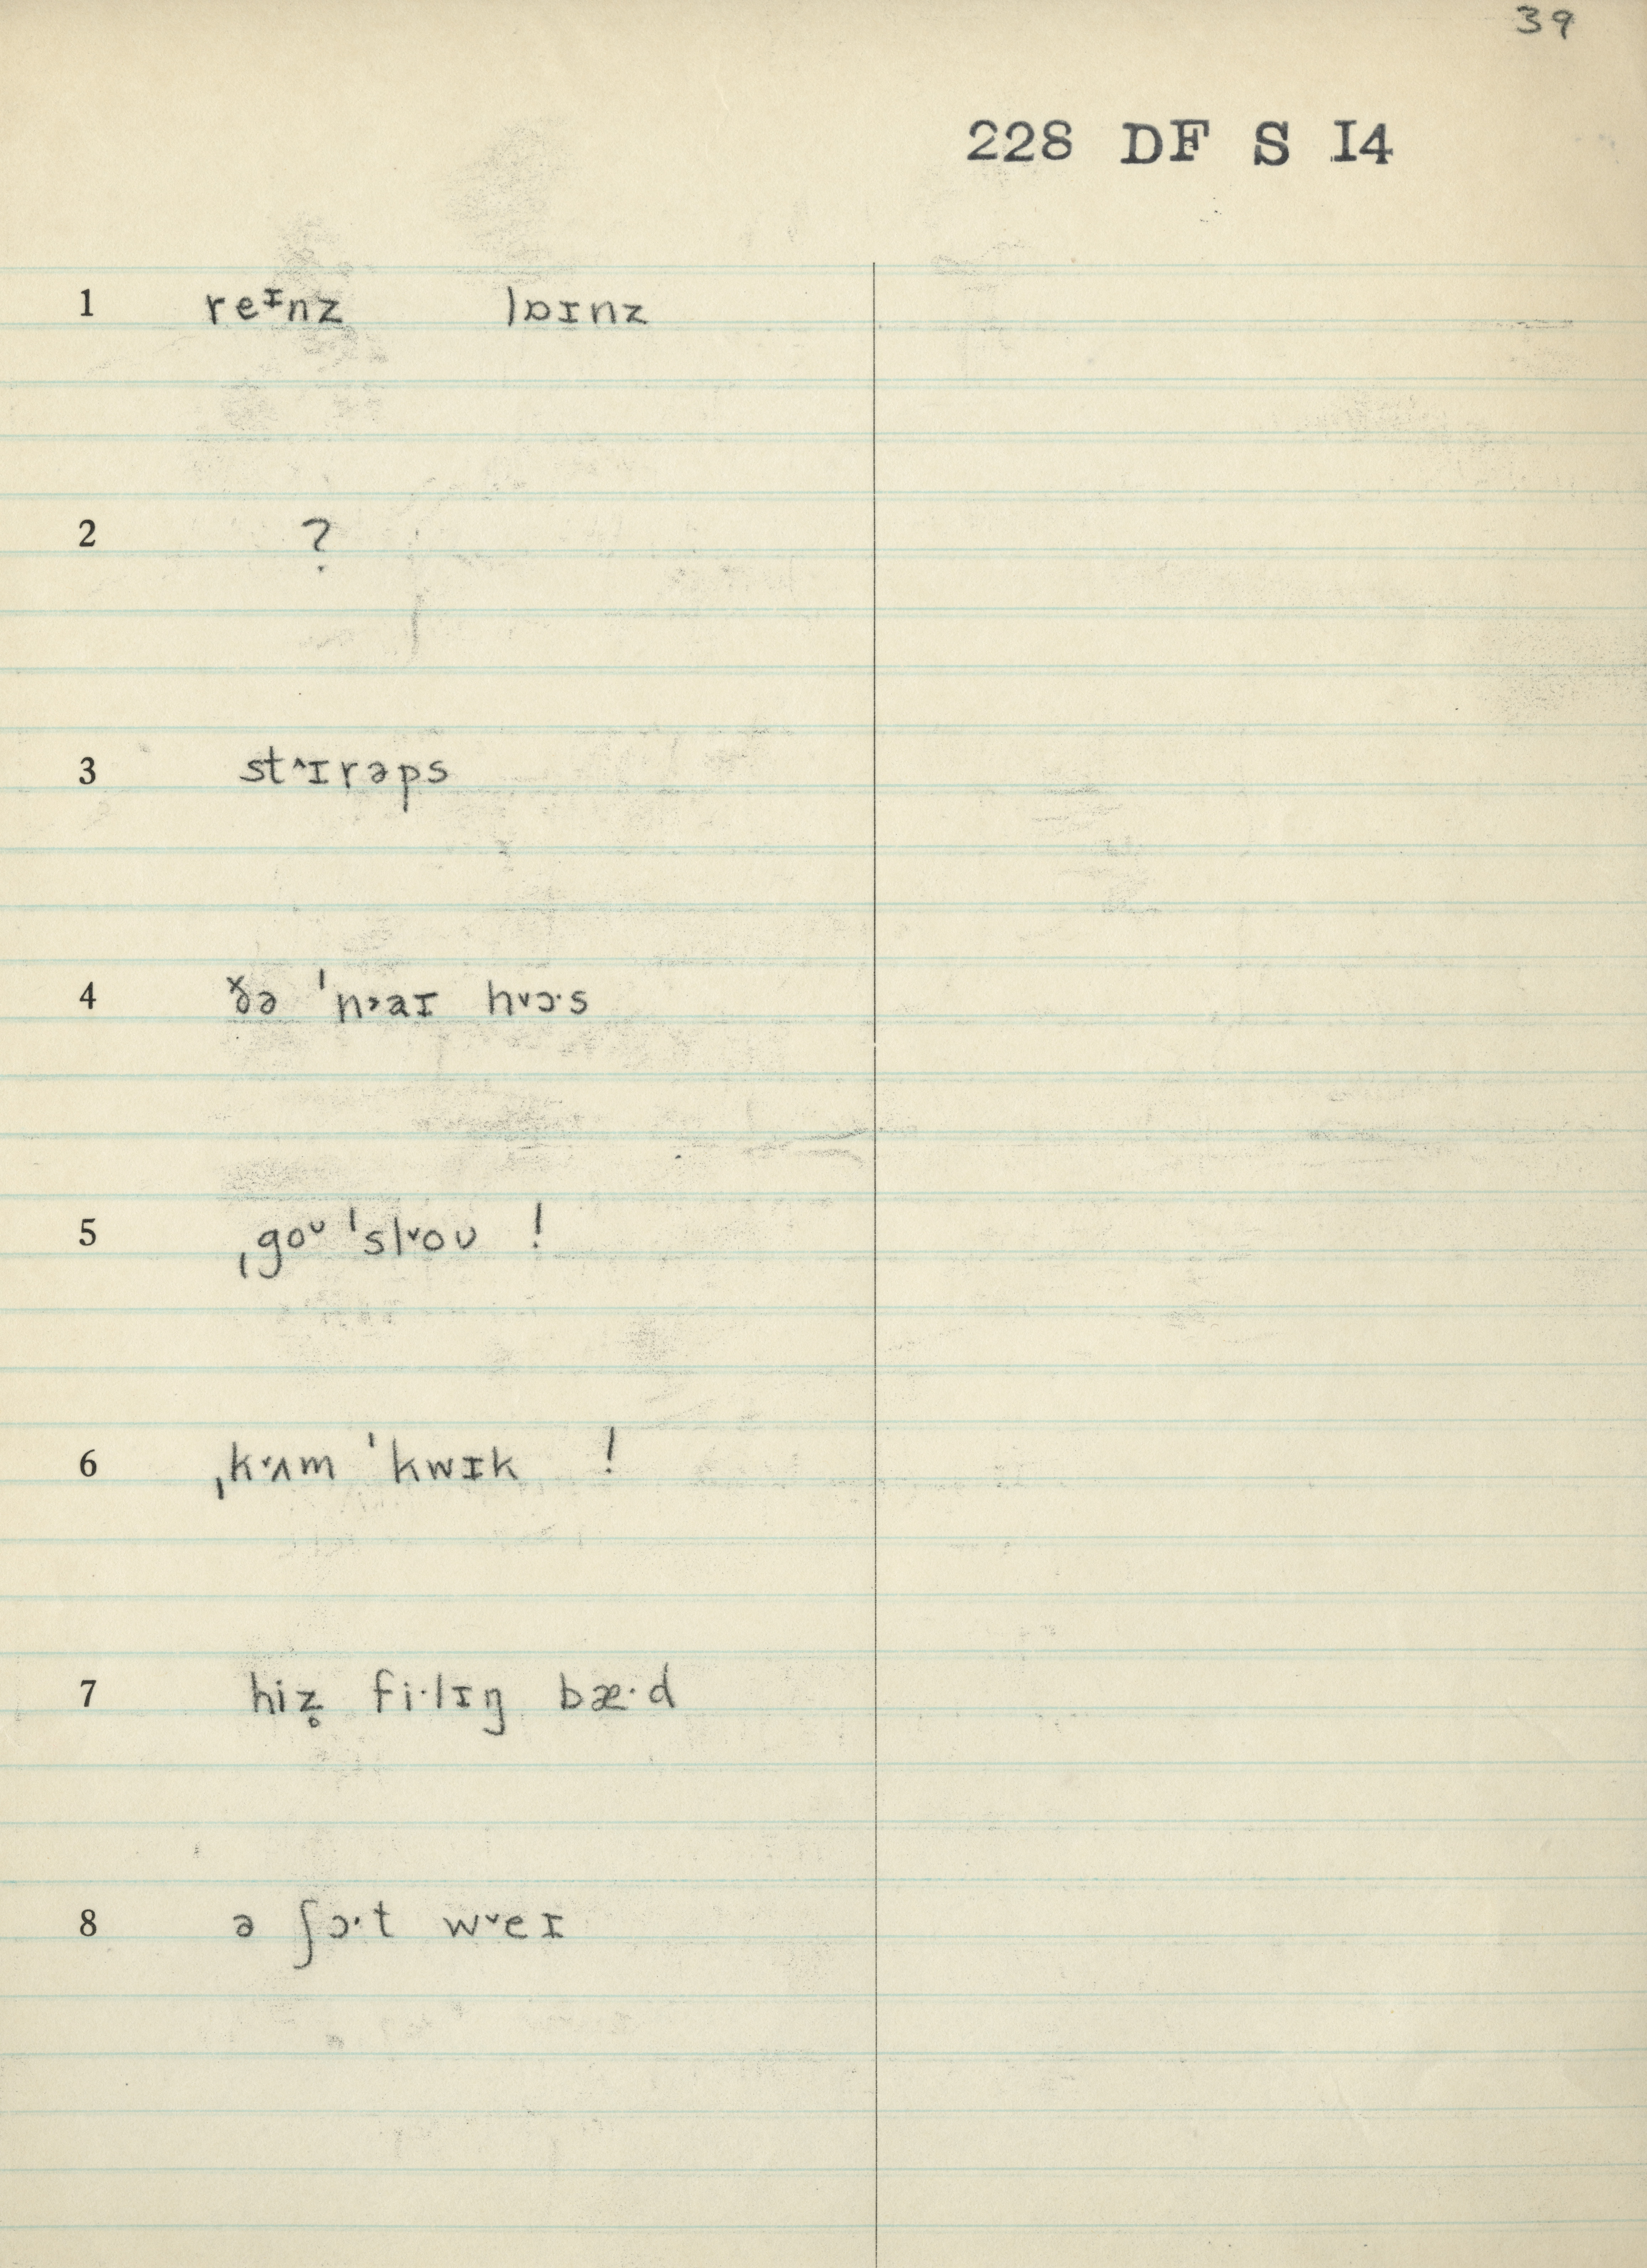 39
228 DF S I4
1 reᶦnz lɒɪnz
2 ?
3 st˄ɪrəps
4 ɣ̌ə ˈn˃aɪ h˅ɔ·s
5 ˌgoᶷ ˈsl˅oʊ !
6 ˌk˅ʌm ˈkwɪk !
7 hiz̥ fi·lɪŋ bæ·d
8 ə ʃɔ·t w˅eɪ